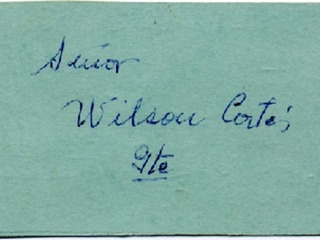 Señor
Wilson Cortés
Gte